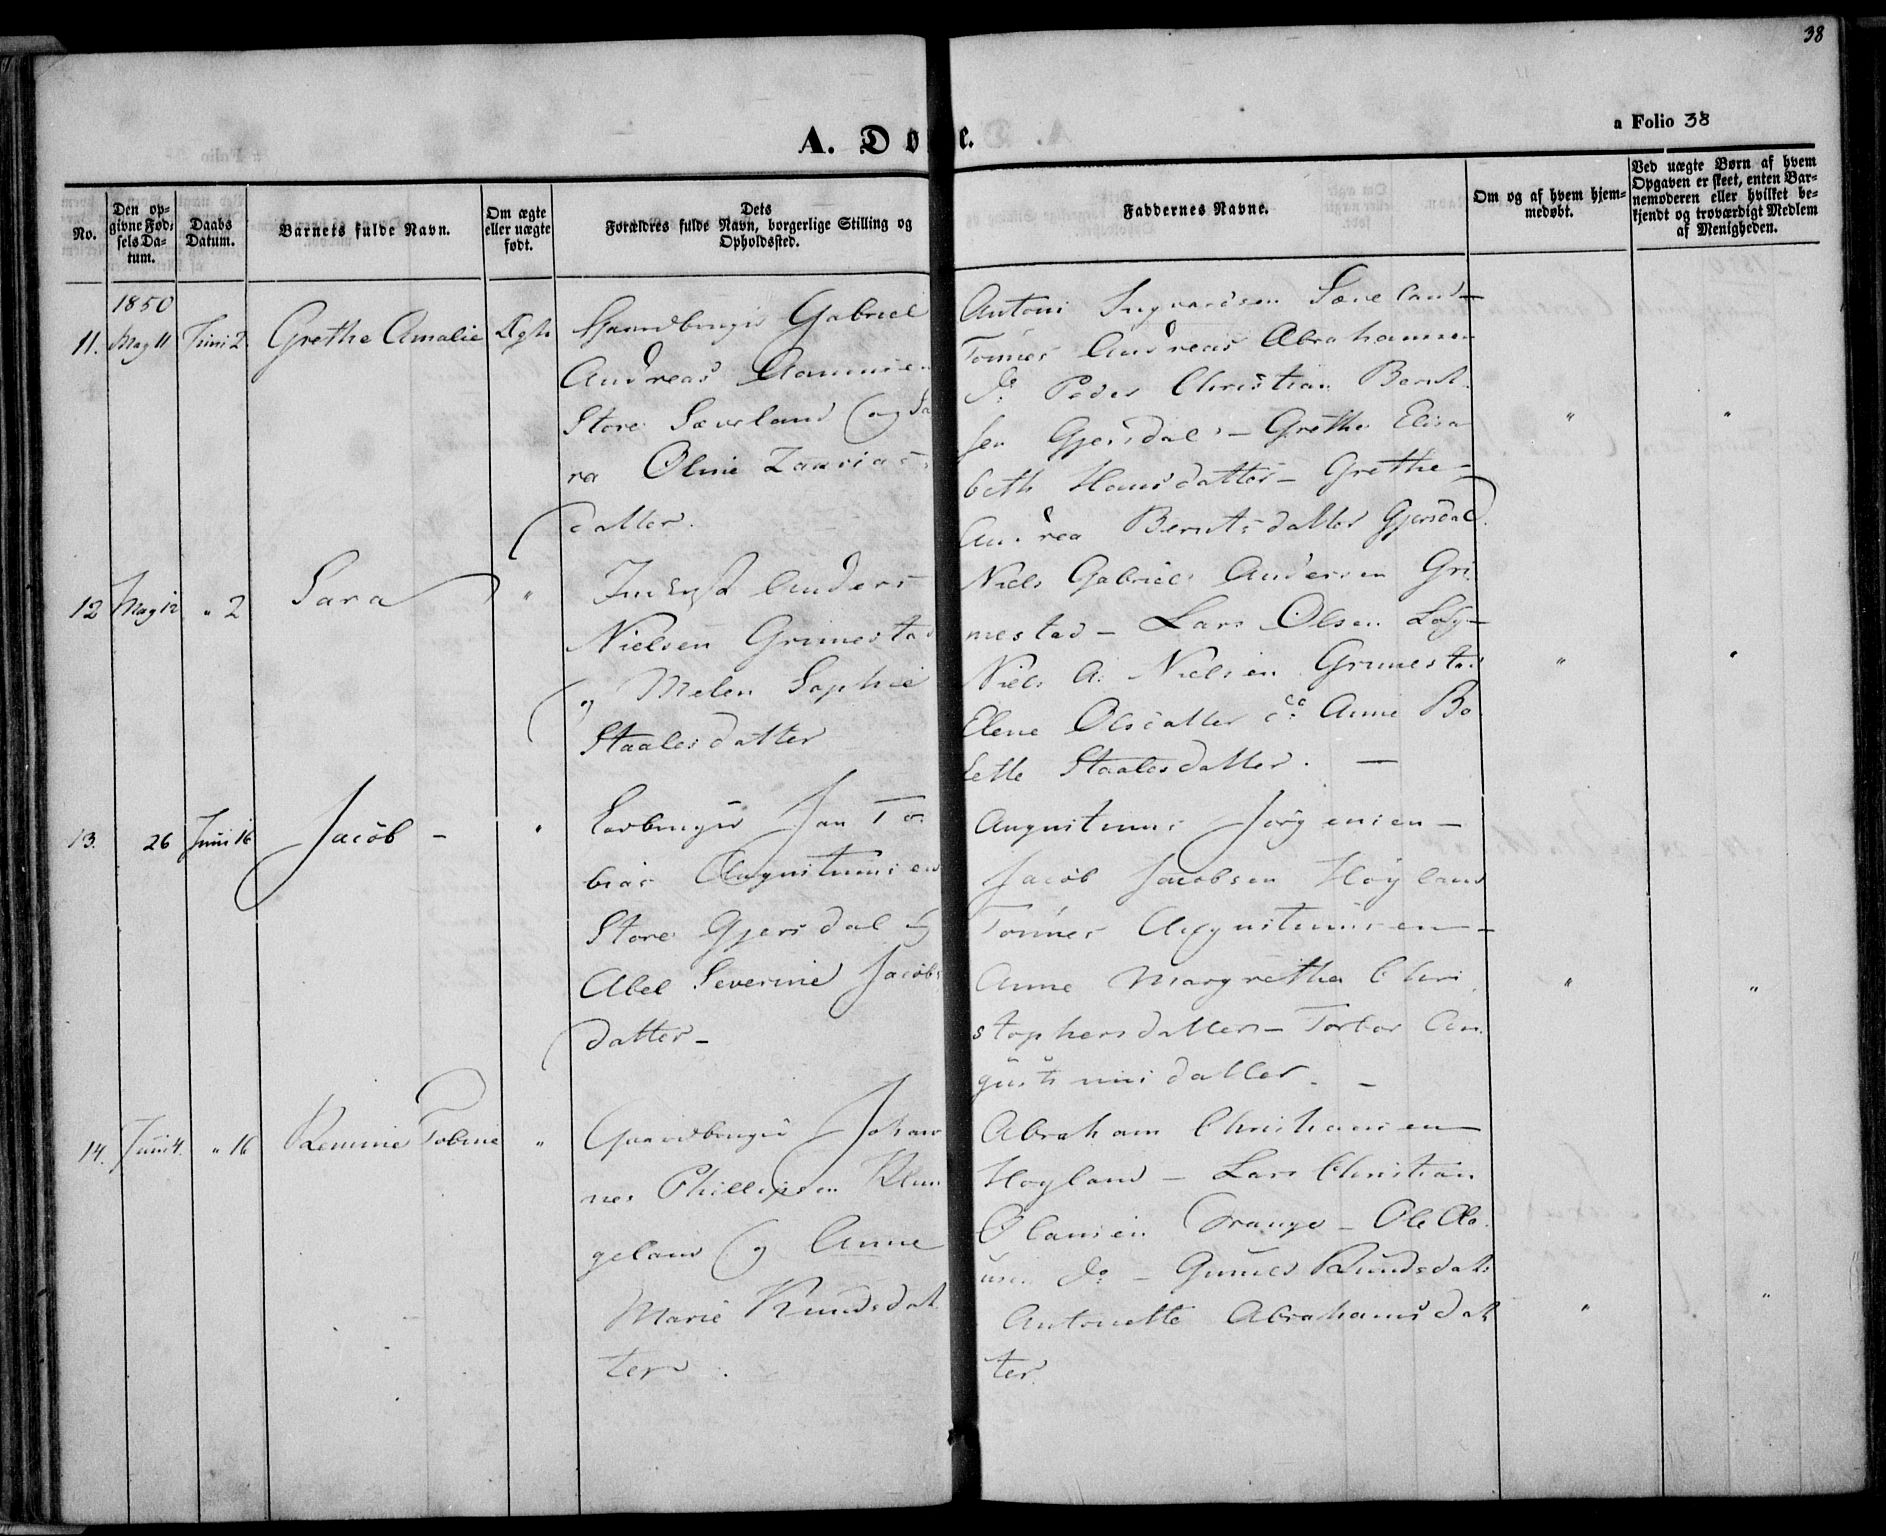 38
a Folio 38
A. Døbte.
No.
Den opgivne Fødselsdatum.
Daabs Datum.
Barnets fulde Navn.
Om ægte eller uægte født.
Dets Forældres fulde Navn, borgerlige Stilling og Opholdssted.
Faddernes Navne.
Om og af hvem hjemmedøbt.
Ved uægte Børn af hvem Opgaven er skeet, enten Barnemoderen eller hvilket bekjendt og troværdigt Medlem af Menigheden.
1850
11. May 11 Juni 2 Grethe Amalie Ægte
Gaardbruger Gabriel
Andreas
Store Sæveland og Sa
ra Oline Zakrias
datter.
Antoni Ingvardsen Sæveland
Tønnes Andreas Abrahamsen
do Peder Christian Bernt
sen Gjersdal - Grethe Elisa
beth Hansdatter - Grethe
Andrea Berntsdatter Gjersdal
" "
12 May 12 " 2 Sara "
Inderst Anders
Nielsen Grimestad
og Melen Sophie
Staalesdatter
Niels Gabriel Andersen Gri
mestad - Lars Olsen
Niels A. Nielsen Grimestad
Elene Olsdatter do Anne Bo
lette Staalesdatter. -
" "
13. 26 Juni 16 Jacob - "
Jan To
bias Augustinusen
Store Gjersdal og
Abel Severine Jacobs
datter -
Augustinus Jørgensen -
Jacob Jacobsen Høyland
Tønnes Augustinusen -
Anne Margrethe Chri
stophersdatter - Torbor Au
gustinusdatter. -
" "
14. Juni 4. " 16 Remine Tobine "
Gaardbruger Johan
nes Phillipsen Klun
geland og Anne
Marie Knudsdat
ter.
Abraham Christiansen
Høyland - Lars Christian
Olausen Orange - Ole Ola
usen do - Gunild Knudsdatt
Antonette Abrahamsdat
ter
" "